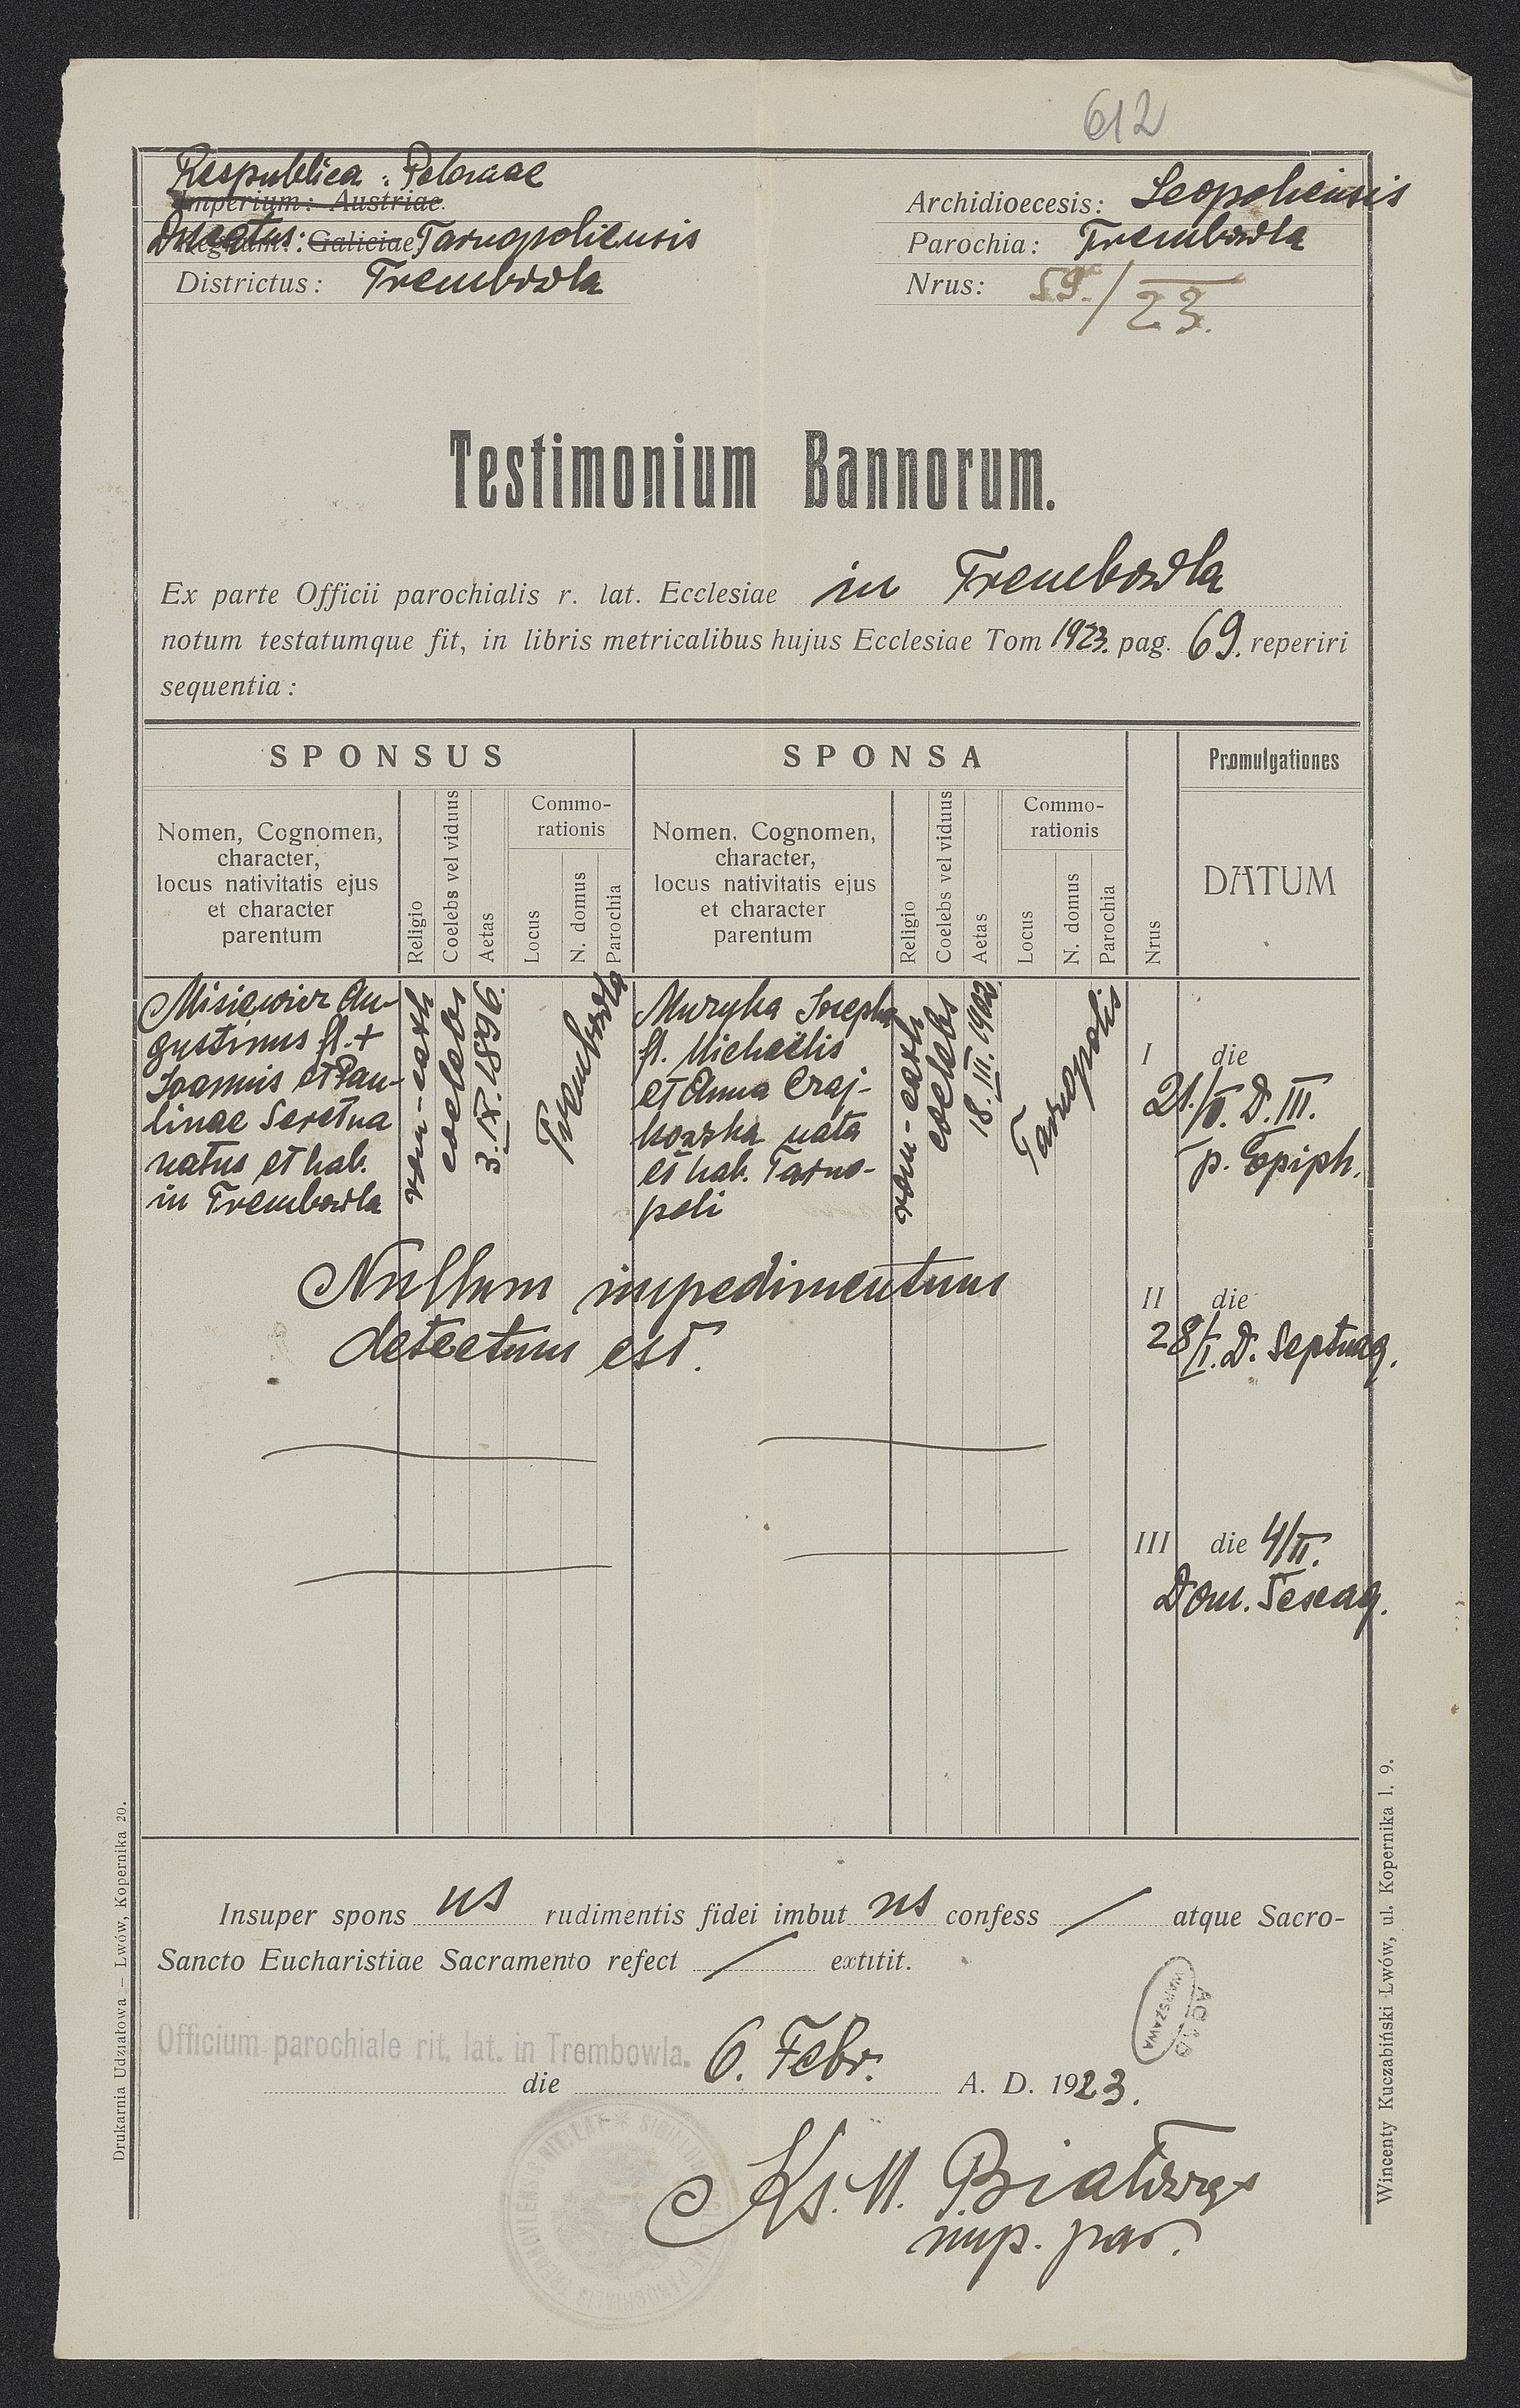 612
Respublica : Poloniae
Imperium: Austriae.
Ducatus: Galiciae Tarnopoliensis
Districtus: Trembowla
Archidioecesis: Leopoliensis
Parochia: Trembowla
Nrus: 59./23.
Testimonium Bannorum.
Ex parte Officii parochialis r. lat. Ecclesiae in Trembowla
notum testatumque fit, in libris metricalibus hujus Ecclesiae Tom 1923. pag. 69. reperiri
sequentia:
SPONSUS
SPONSA
Promulgationes
Nomen, Cognomen,
character,
locus nativitatis ejus
et character
parentum
Religio
Coelebs vel viduus
Aetas
Commo-
rationis
Locus
N. domus
Parochia
Nomen, Cognomen,
character,
locus nativitatis ejus
et character
parentum
Religio
Coelebs vel viduus
Aetas
Commo-
rationis
Locus
N. domus
Parochia
Nrus
DATUM
Misiewicz Au-
gustinus fl. +
Joannis et Pau-
linae Seretna
natus et hab.
in Trembowla
rom-cath
coelebs
3.IX.1896.
Trembowla
Muzyka Josepha
fl. Michaëlis
et Anna Czaj-
kowska nata
et hab. Tarno-
poli
rom-cath
coelebs
18.III.1902.
Tarnopolis
I die
21./I. D. III.
p. Epiph.
Nullum impedimentum
detectum est.
II die
28/I. D. Septuag.
III die 4/II.
Dom. Sexag.
Insuper spons us rudimentis fidei imbut us confess / atque Sacro-
Sancto Eucharistiae Sacramento refect / extitit.
Officium parochiale rit. lat. in Trembowla.
die 6. Febr. A. D. 1923.
AGAD
WARSZAWA
Ks. M.
mp. par.
Drukarnia Udziałowa — Lwów, Kopernika 20.
Wincenty Kuczabiński Lwów, ul. Kopernika l. 9.